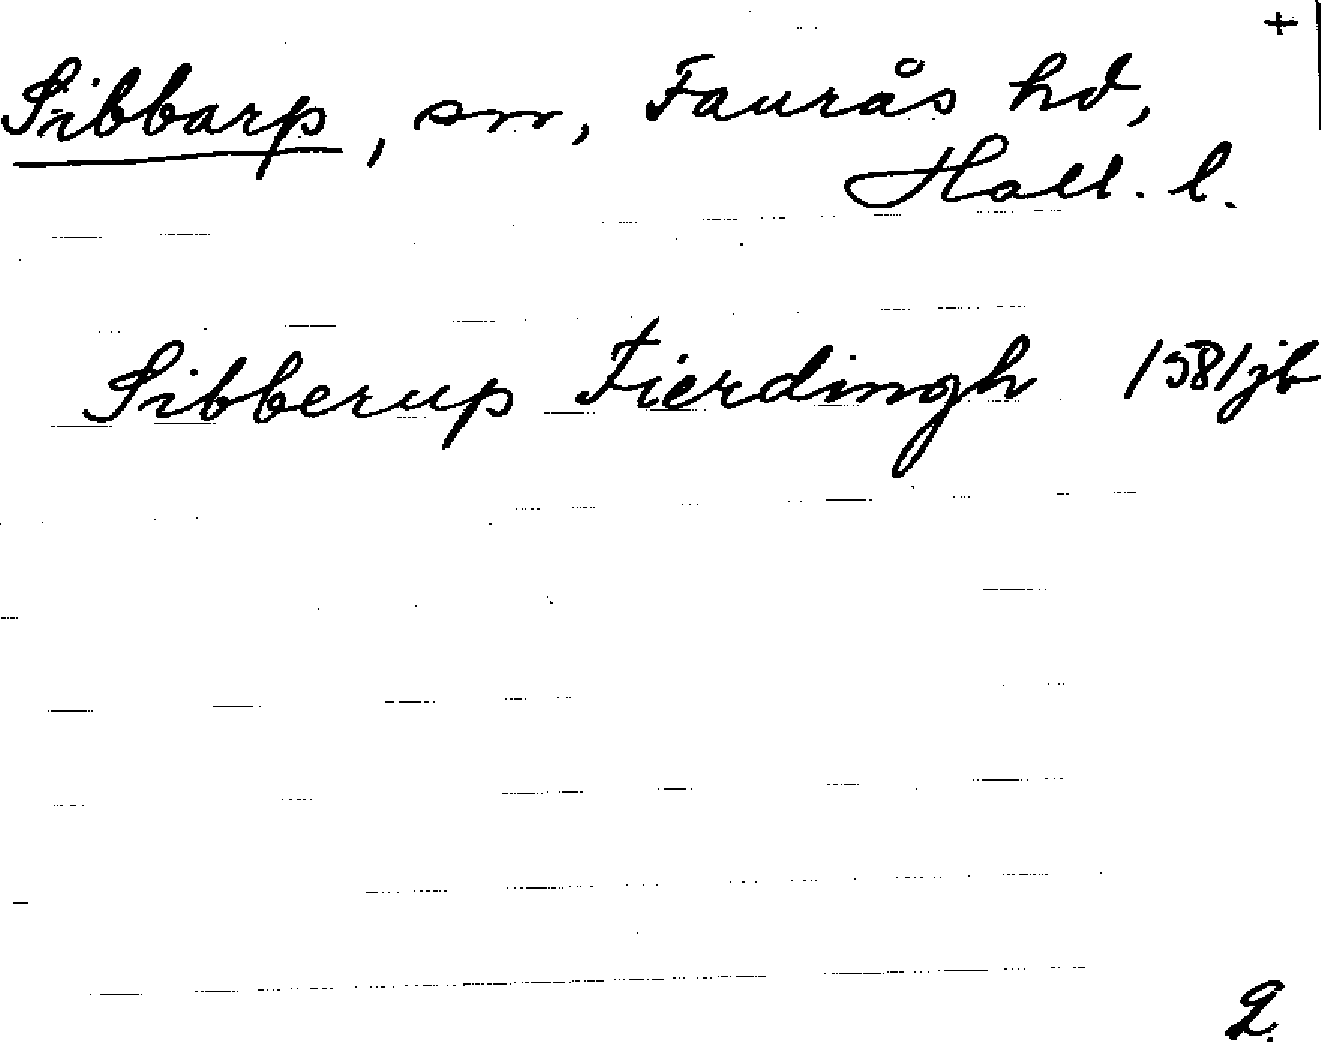 +
Sibbarp, sn, Faurås hd,
Hall. l.
Sibberup Fierdingh 1581 jb
2.